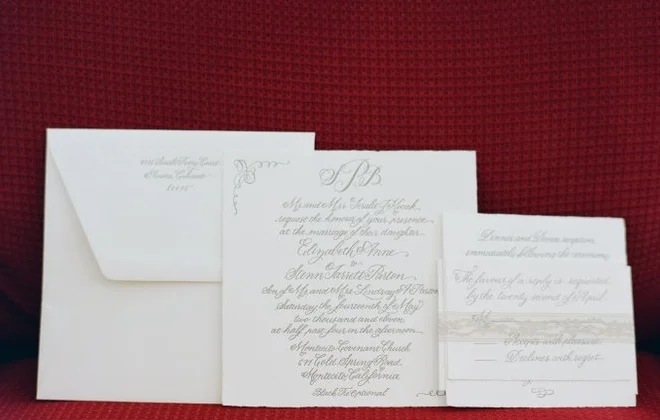 Aurora, Colorado
SPB
Mr. and Mrs.
request the honour of your presence
at the marriage of their daughter
Elizabeth Anne
to
Glenn Jarrett Paxton
Son of Mr. and Mrs. Lindsay
Saturday the fourteenth of May
two thousand and eleven
at half past four in the afternoon
Montecito Covenant Church
671 Cold Spring Road
Montecito, California
Black Tie Optional
Dinner and Dance reception
immediately following the ceremony
The favour of a reply is requested
by the twenty second of April
M
Accepts with pleasure
Declines with regret